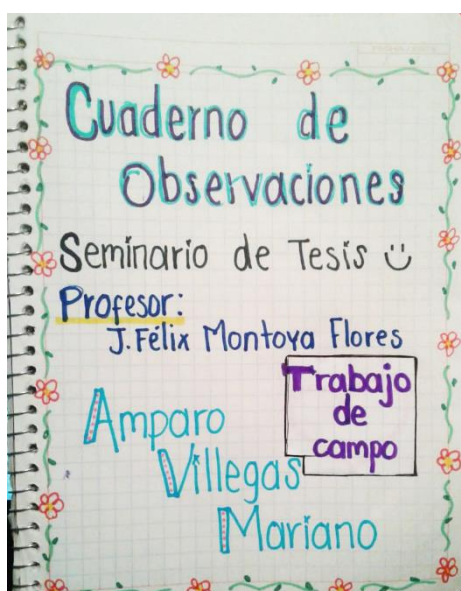 Cuaderno de
Observaciones
Seminario de Tesis
Profesor:
J. Félix Montoya Flores
Trabajo
de
campo
Amparo
Villegas
Mariano